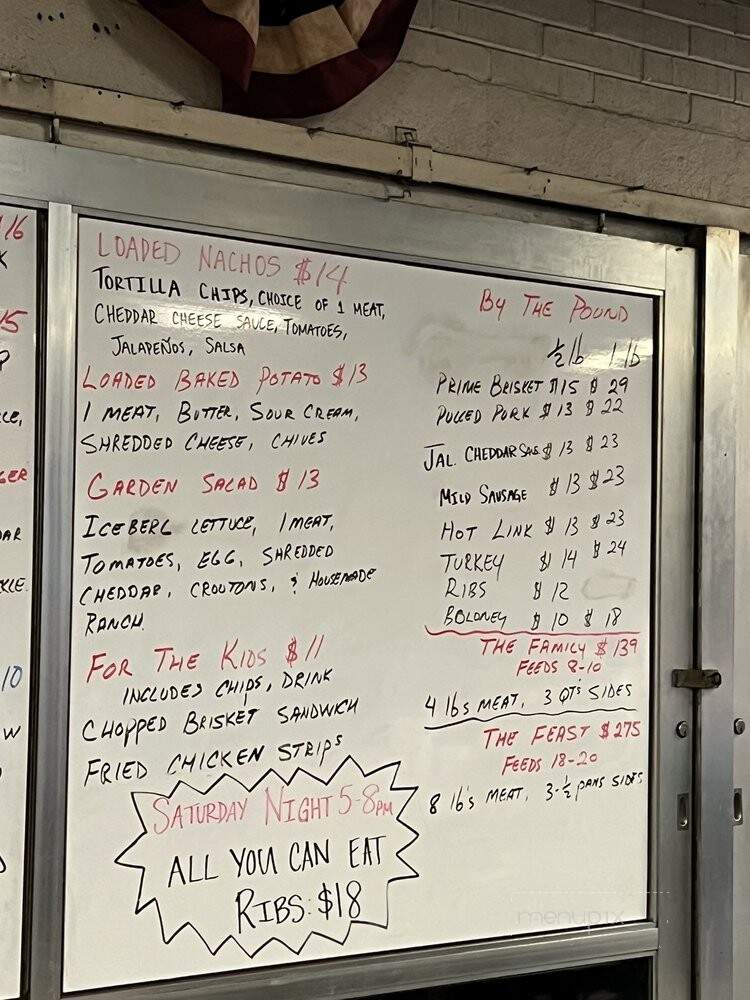 LOADED NACHOS $14
TORTILLA CHIPS, CHOICE OF 1 MEAT,
CHEDDAR CHEESE SAUCE, TOMATOES,
JALAPEÑOS, SALSA
LOADED BAKED POTATO $13
1 MEAT, BUTTER, SOUR CREAM,
SHREDDED CHEESE, CHIVES
GARDEN SALAD $13
ICEBERG LETTUCE, 1 MEAT,
TOMATOES, EGG, SHREDDED
CHEDDAR, CROUTONS, & HOUSEMADE
RANCH.
FOR THE KIDS $11
INCLUDES CHIPS, DRINK
CHOPPED BRISKET SANDWICH
FRIED CHICKEN STRIPS
SATURDAY NIGHT 5-8PM
ALL YOU CAN EAT
RIBS: $18
BY THE POUND
1/2 lb 1 lb
PRIME BRISKET $15 $29
PULLED PORK $13 $22
JAL. CHEDDAR SAUS. $13 $23
MILD SAUSAGE $13 $23
HOT LINK $13 $23
TURKEY $14 $24
RIBS $12
BOLONEY $10 $18
THE FAMILY $139
FEEDS 8-10
4 lbs MEAT, 3 QTS SIDES
THE FEAST $275
FEEDS 18-20
8 lb's MEAT, 3-1/2 PANS SIDES
menupix